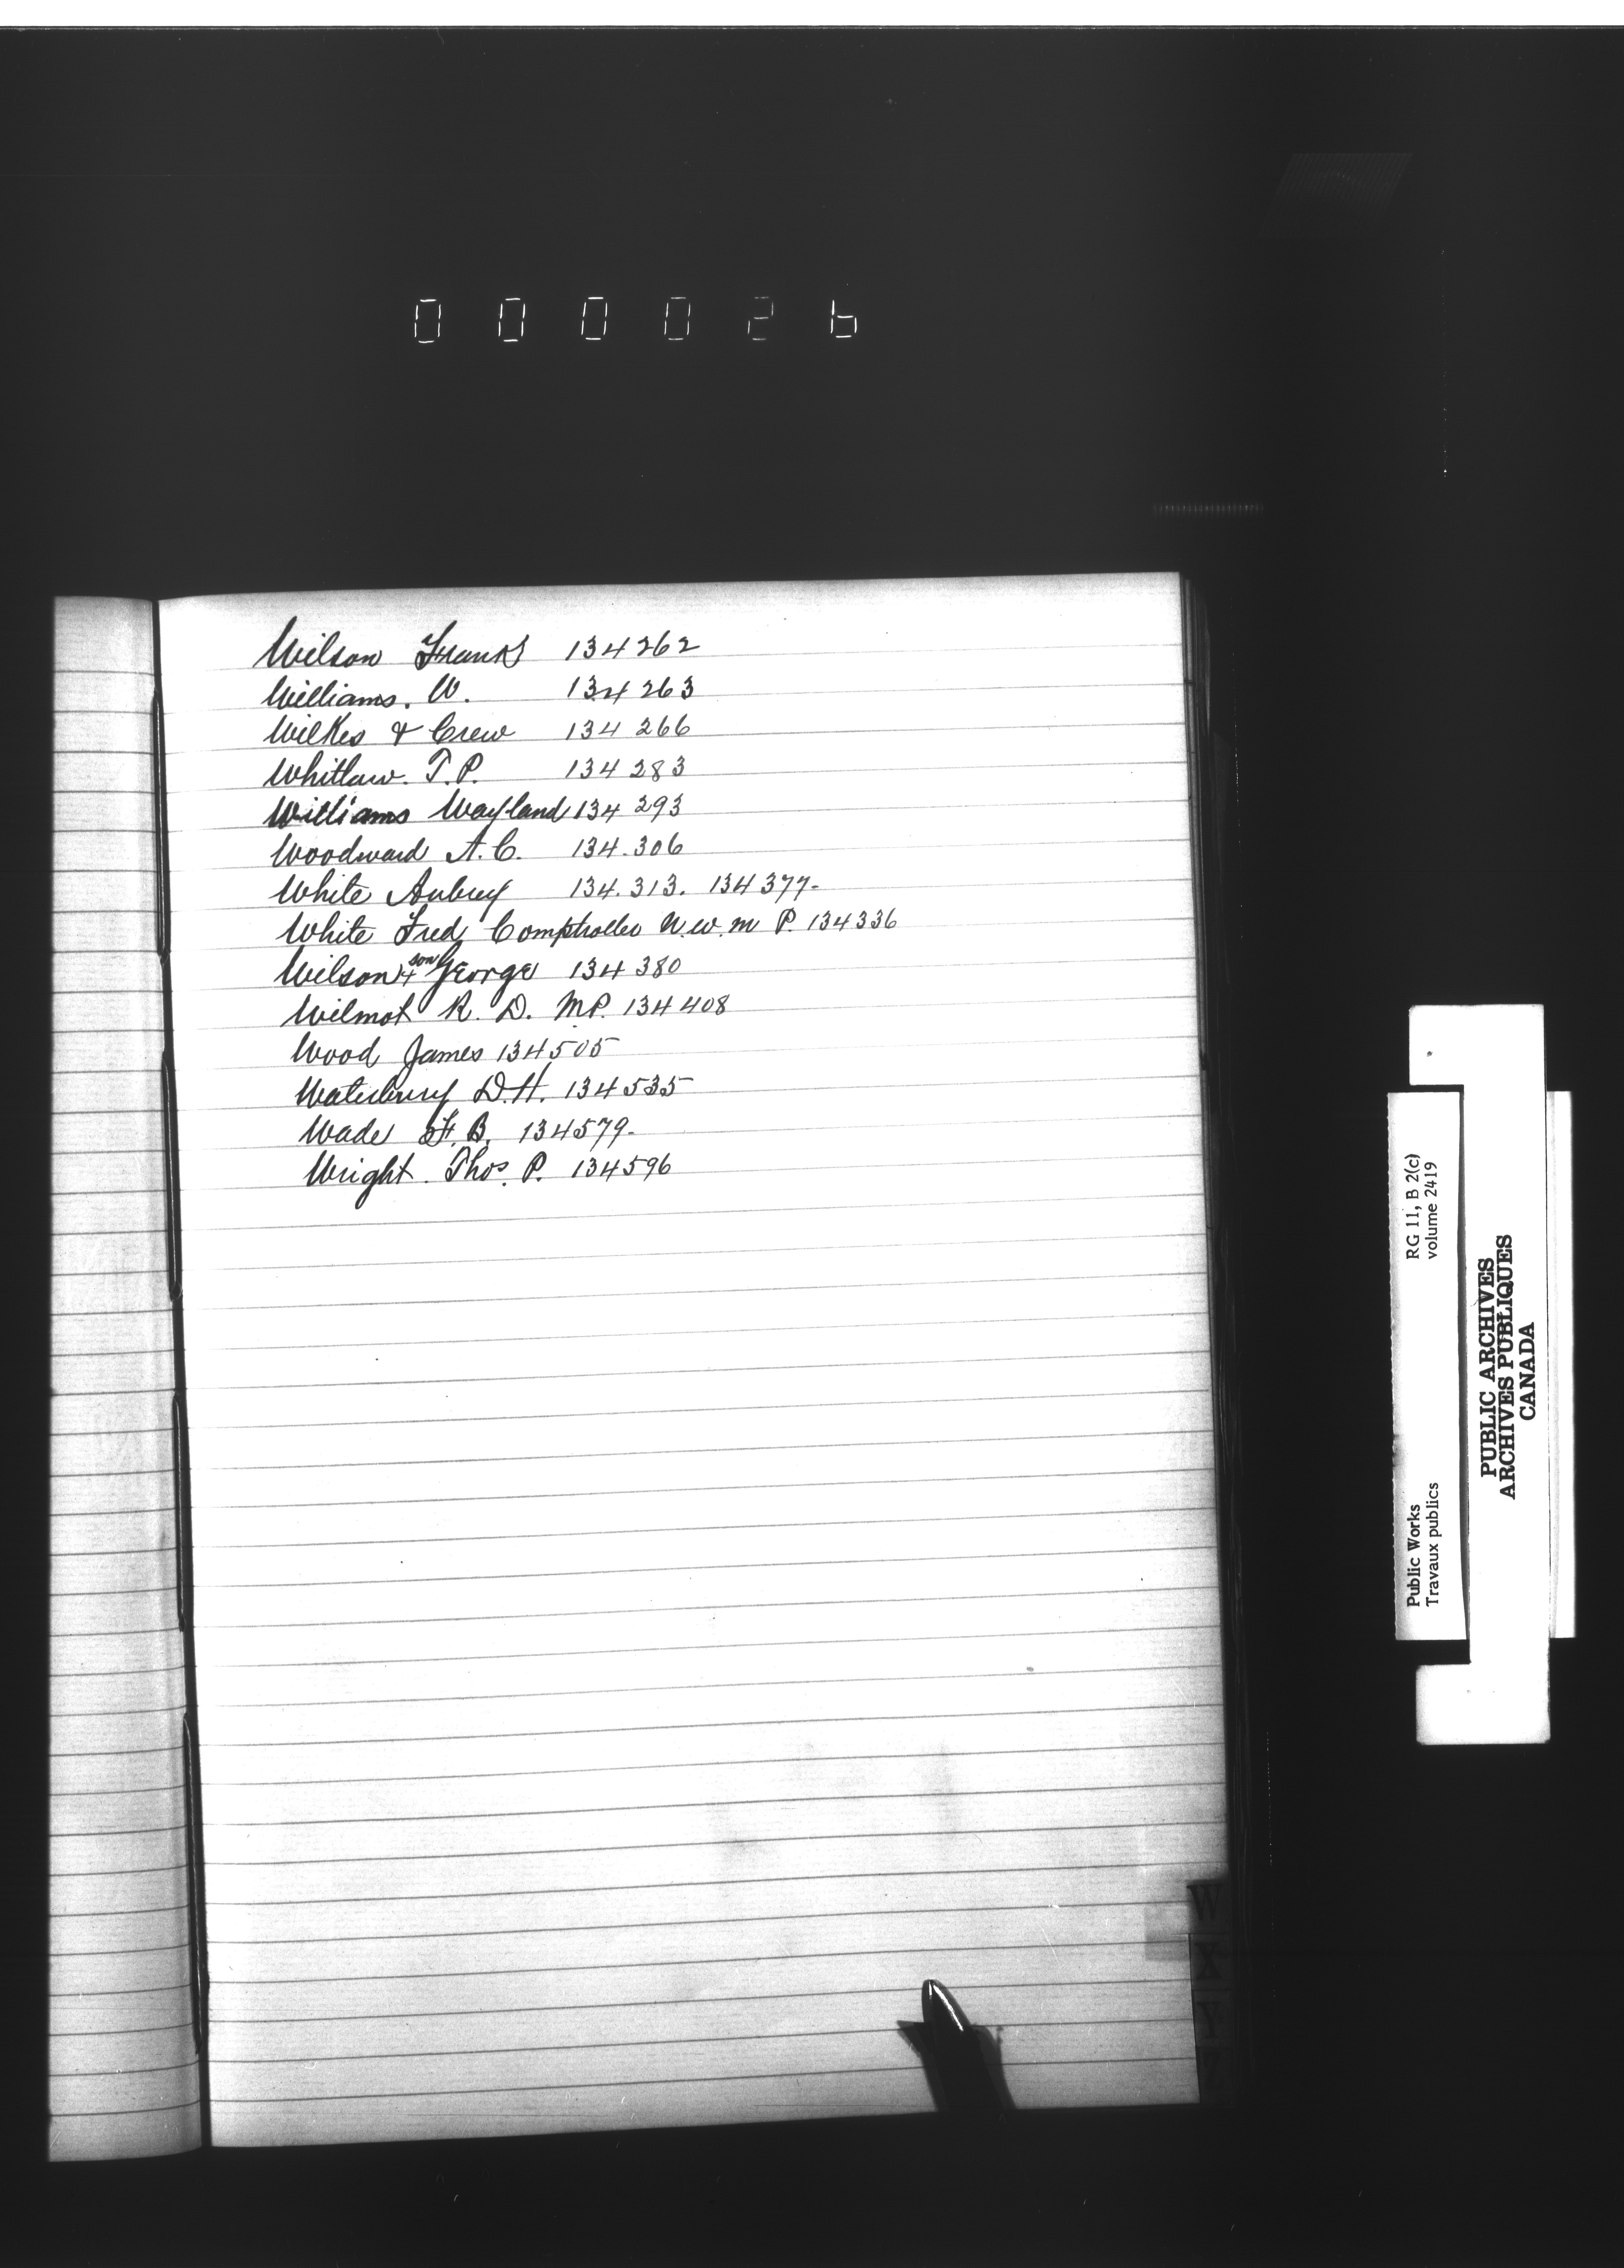 000026
Wilson Frank 134262
Williams. W. 134263
Wilkes & Crew 134266
Whitlaw. T.P. 134283
Williams Wayland 134293
Woodward A.C. 134.306
White Aubrey 134.313. 134377-
White Fred Comptroller N.W.M P. 134336
Wilson & son George 134380
Wilmot R. D. M.P. 134408
Wood James 134505
Waterbury D.H. 134535
Wade F.B. 134579-
Wright. Thos. P. 134596
W
X
Y
Z
Public Works
Travaux publics
RG 11, B 2(c)
volume 2419
PUBLIC ARCHIVES
ARCHIVES PUBLIQUES
CANADA